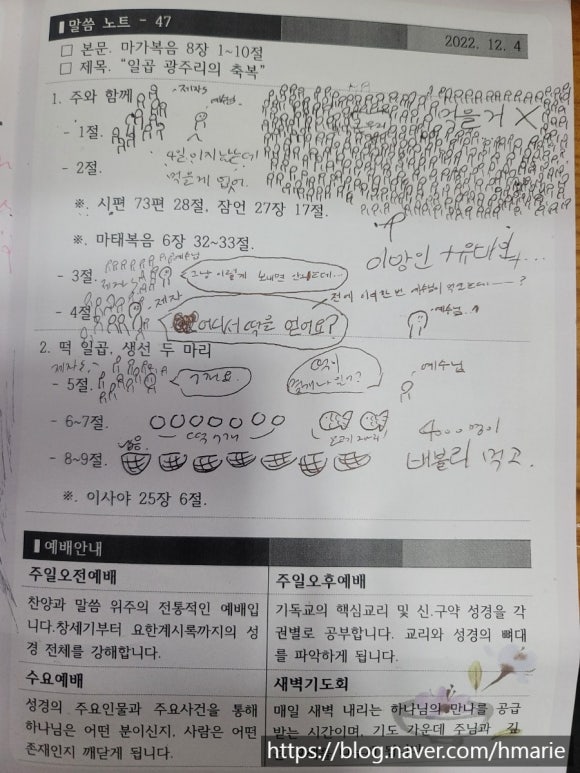 말씀 노트 - 47
2022. 12. 4
□ 본문. 마가복음 8장 1~10절
□ 제목. “일곱 광주리의 축복”
1. 주와 함께
제자들
예수님
- 1절.
먹을거 X
- 2절.
4일이지났는데
먹을게 없어.
※. 시편 73편 28절, 잠언 27장 17절.
※. 마태복음 6장 32~33절.
이방인 + 유대인...
- 3절.
예수님
제자들
그냥 이렇게 보내면 안되는데...
- 4절.
제자
어디서 떡을 얻어요?
예수님..
2. 떡 일곱, 생선 두 마리
제자들.
- 5절.
7개요.
떡이
몇개나 있니?
예수님
- 6~7절.
떡 7개
물고기 2마리
4000명이
배불리 먹고.
남음.
- 8~9절.
※. 이사야 25장 6절.
예배안내
주일오전예배
찬양과 말씀 위주의 전통적인 예배입
니다.창세기부터 요한계시록까지의 성
경 전체를 강해합니다.
주일오후예배
기독교의 핵심교리 및 신.구약 성경을 각
권별로 공부합니다. 교리와 성경의 뼈대
를 파악하게 됩니다.
수요예배
성경의 주요인물과 주요사건을 통해
하나님은 어떤 분이신지. 사람은 어떤
존재인지 깨닫게 됩니다.
새벽기도회
매일 새벽 내리는 하나님의 만나를 공급
받는 시간이며, 기도 가운데 주님과 깊
https://blog.naver.com/hmarie